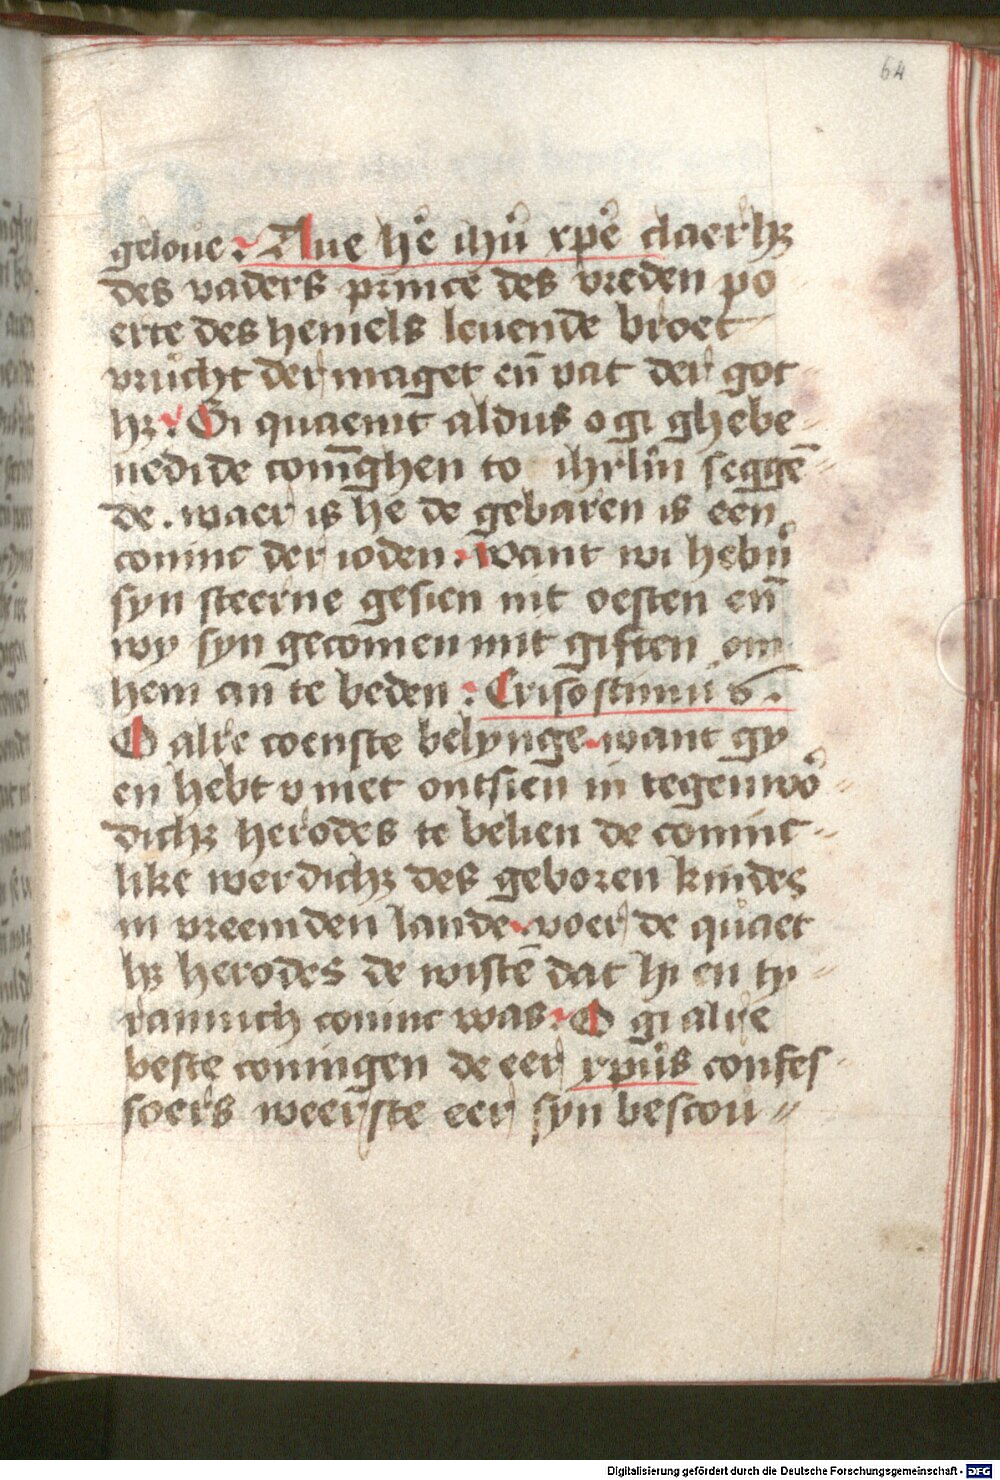 64
geloue: Aue he᷑ ihũ xpe᷑ claerhʒ
des vaders prince des vreden po
erte des hemels leuende broet
vrucht der maget eñ vat der got-
hʒ: Gi quaemt aldus o gi ghebe-
nedide coni̅ghen to ihrlm̃ seggē-
de. waer is he de gebaren is een
coninc der ioden. Want wi hebñ
syn steerne gesien int oesten eñ
wy syn gecomen mit giften om
hem an te beden: Crisostimus.
O alre coenste belynge want gy
en hebt v niet ontsien in tegenwo᷑-
dichʒ herodes te belien de coninc-
like werdichʒ des geboren kindes
in vreemden lande. voer de quaet
hʒ herodes de wistē dat hi en ty-
rannich coninc was: O gi alre
beste coningen de eer xpũs confes-
soers weerste eer syn bescou-
Digitalisierung gefördert durch die Deutsche Forschungsgemeinschaft - DFG